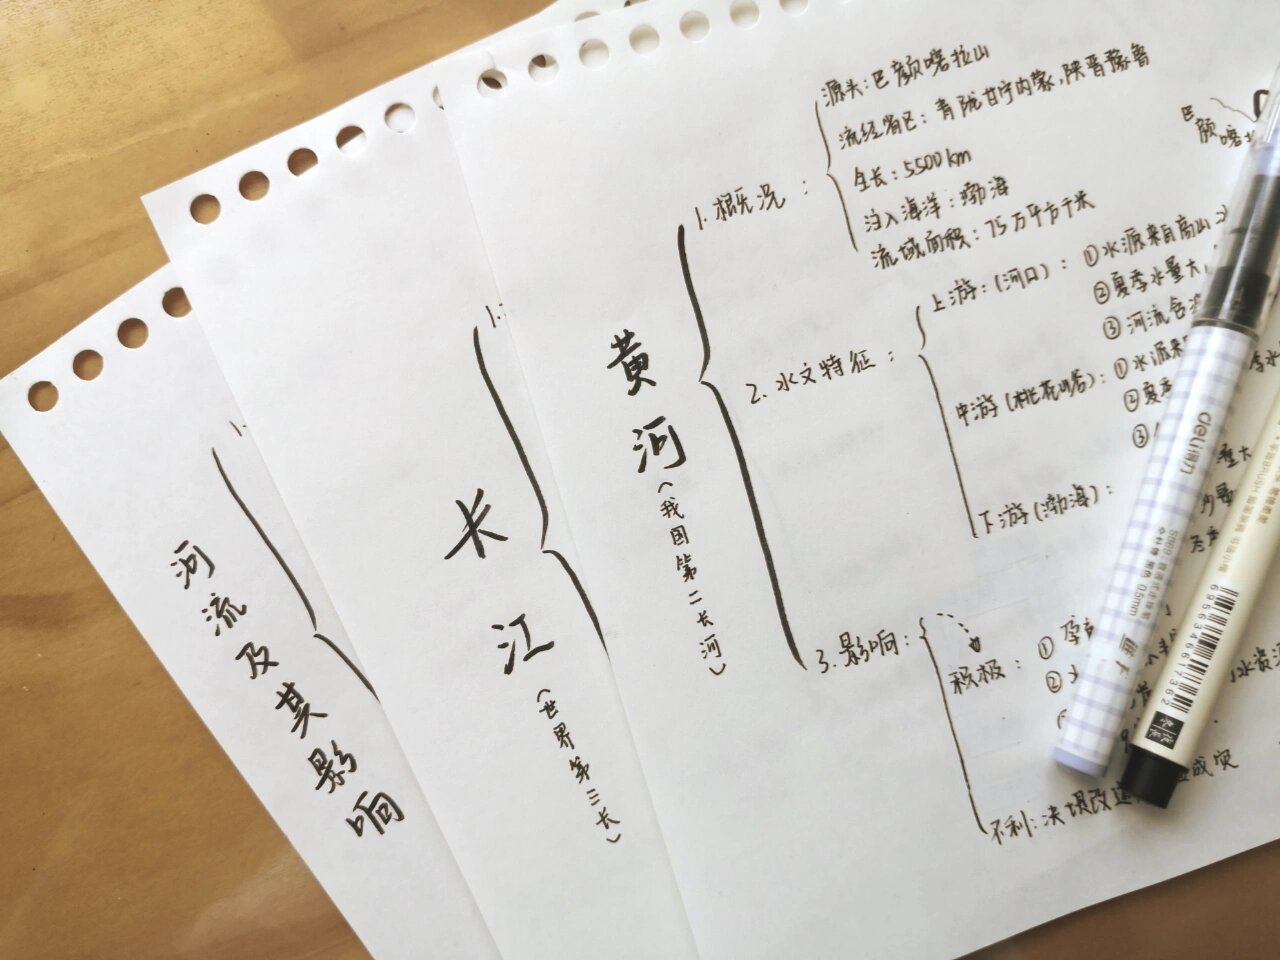 河流及其影响
1.
长江
(世界第三长)
1.
黄河
(我国第二长河)
1. 概况:
源头:巴颜喀拉山
流经省区:青陇甘宁内蒙,陕晋豫鲁
全长:5500km
注入海洋:渤海
流域面积:75万平方千米
巴颜喀拉
2. 水文特征:
上游:(河口):①水源来自高山
②夏季水量大
③河流含
中游(桃花峪):①水源来
②夏季
③
下游(渤海):
量大
3. 影响:
积极:①孕
②水
水资源
不利:决堤改道 成灾
deli得力
0.5mm
6956346617362